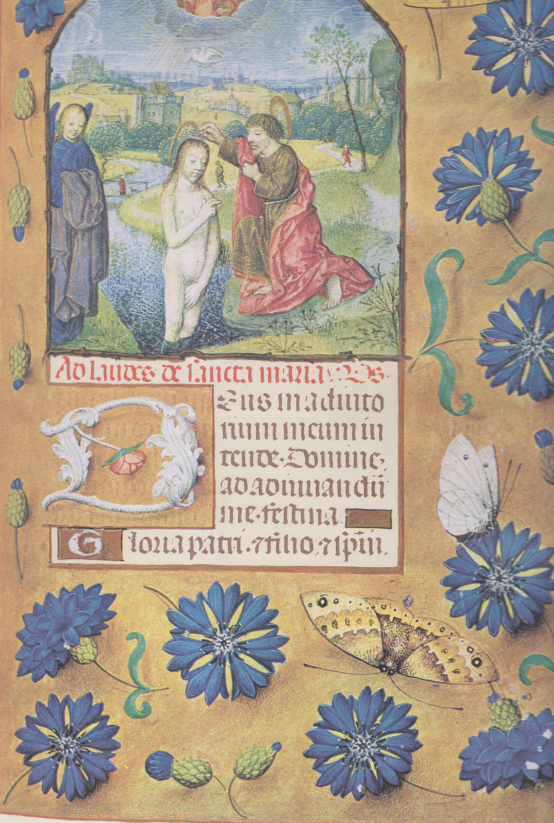 Ad laudes de sancta maria. Vs.
Deus in adiuto
rium meum in
tende. Domine.
ad adiuuandū
me. festina.
Gloria patri. ⁊ filio. ⁊ spūi.